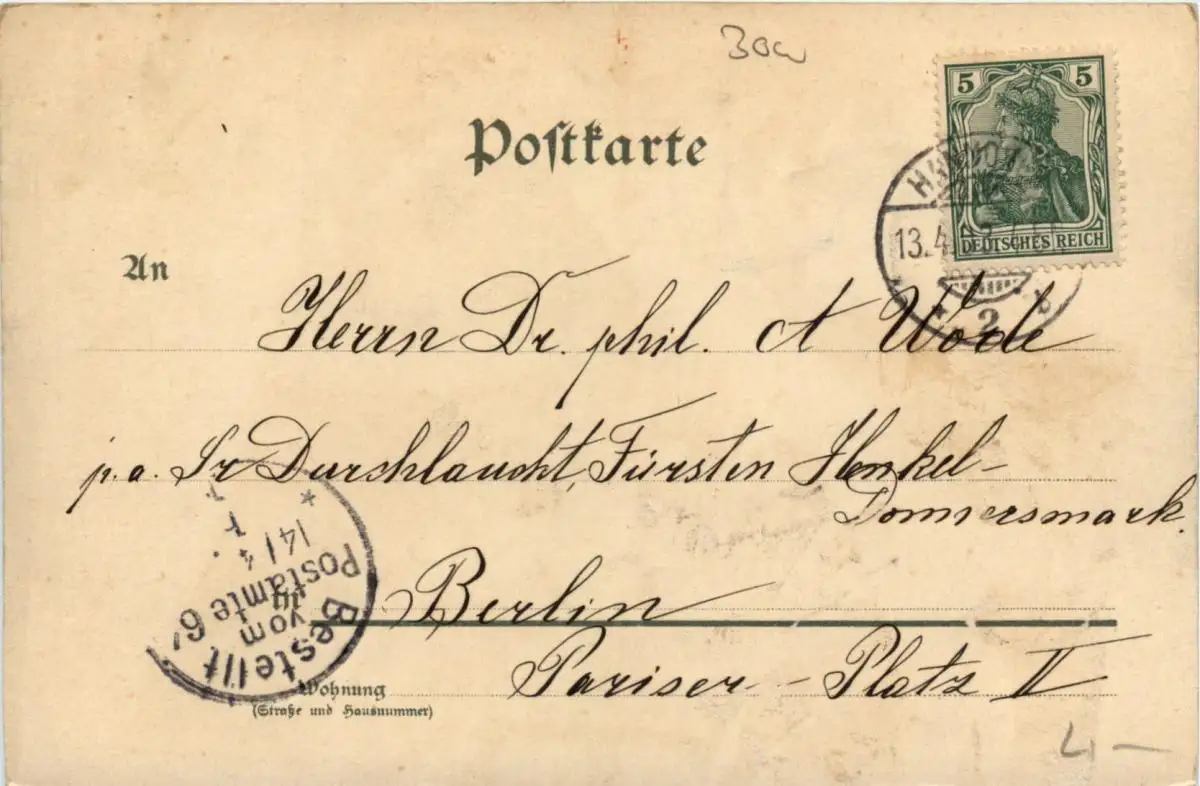 30w
5 5
Postkarte
DEUTSCHES REICH
13.4.
2 b
An
Herrn Dr. phil. A Wode
p. a. Sr Durchlaucht, Fürsten Henkel-
Donnersmark.
in Berlin
Pariser-Platz II
Wohnung
(Straße und Hausnummer)
Bestellt
vom
Postamte 6
14/4
4 –